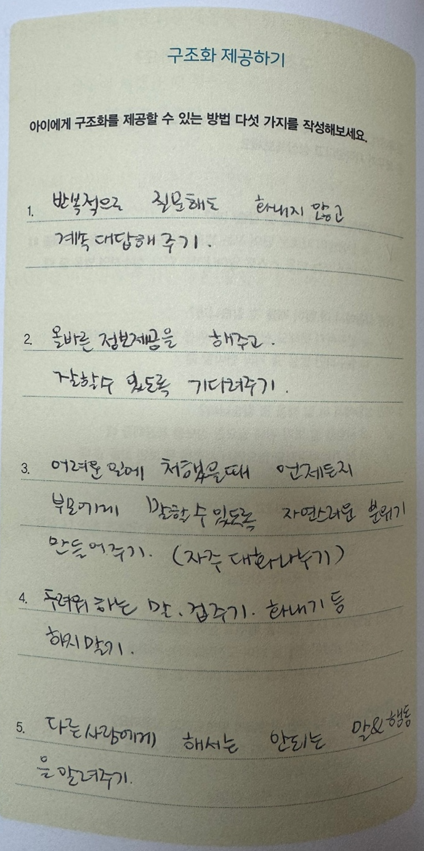 구조화 제공하기
아이에게 구조화를 제공할 수 있는 방법 다섯 가지를 작성해보세요.
1. 반복적으로 질문해도 화내지 않고
계속 대답해 주기.
2. 올바른 정보제공을 해주고.
잘할수 있도록 기다려주기.
3. 어려운 일에 처했을때 언제든지
부모에게 말할수 있도록 자연스러운 분위기
만들어주기. (자주 대화나누기)
4. 두려워 하는 말. 겁주기. 화내기 등
하지말기.
5. 다른사람에게 해서는 안되는 말&행동
을 알려주기.